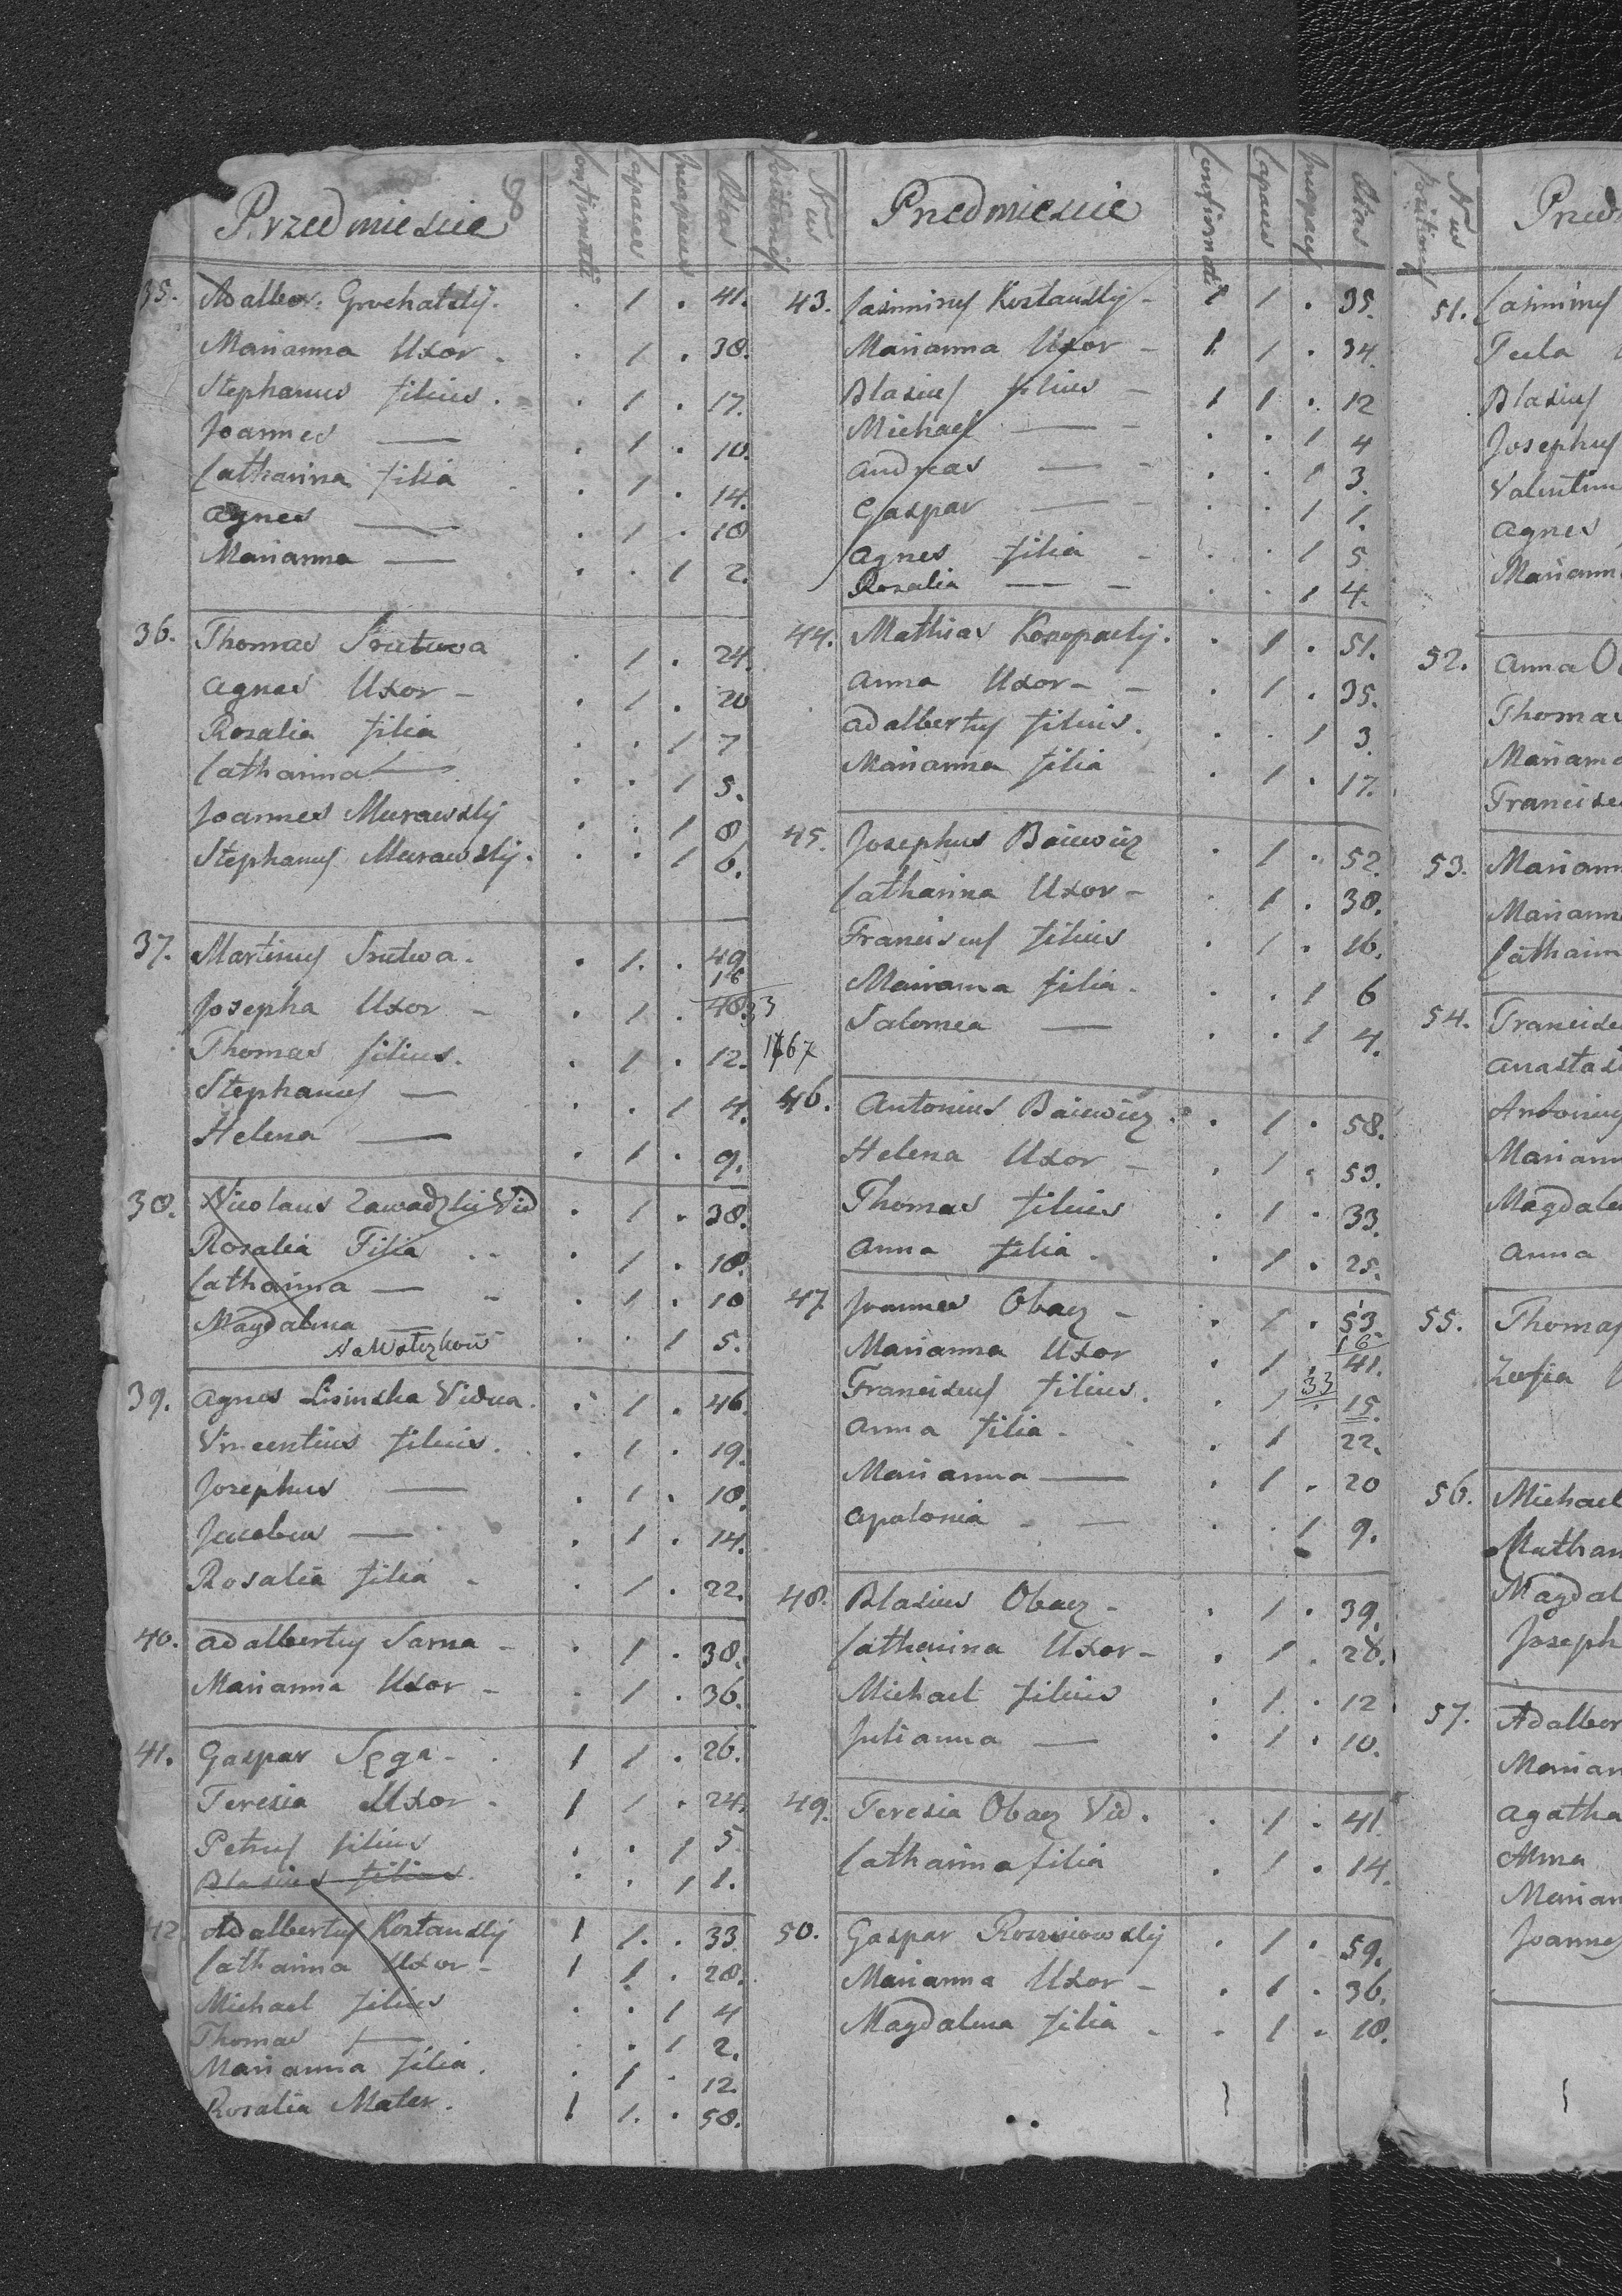 Przedmiescie
Confirmati Capaces Incapaces Aetas
35. Adalber. Grochalskij. . 1 . 41.
Marianna Uxor . 1 . 38.
Stephanus filius . . 1 . 17.
Joannes — . 1 . 10.
Catharina filia . 1 . 14.
Agnes — . 1 . 10
Marianna — . . 1 2.
36. Thomas Srutwa . 1 . 24.
Agnes Uxor - . 1 . 20
Rosalia filia . . 1 7
Catharina — . . 1 5.
Joannes Murawskij . . 1 8
Stephanus Murawskij . . . 1 6.
37. Martinus Srutwa . . 1 . 49
16
Josepha Uxor - . 1 . 40 33
Thomas filius . . 1 . 12. 167
Stephanus — . . 1 4.
Helena — . 1 . 9.
38. Nicolaus Zawadzki Vid . 1 . 38.
Rosalia Filia . . . 1 . 18.
Catharina — - . 1 . 10
Magdalena — . . 1 5.
39. Agnes Lisinska Vidua . . 1 . 46.
Vincentius filius . . 1 . 19.
Josephus — . 1 . 18.
Jacobus — . 1 . 14.
Rosalia filia - . 1 . 22.
40. Adalbertus Sarna - . 1 . 38.
Marianna Uxor - . 1 . 36.
41. Gaspar Sęga - 1 1 . 26.
Teresia Uxor - 1 1 . 24.
Petrus filius . . 1 5
Blasius filius . . 1 1.
42 Adalbertus Kostanskij 1 1 . 33
Catharina Uxor - 1 1 . 28.
Michael filius . . 1 4
Thomas — . . 1 2.
Marianna filia . . 1 . 12.
Rosalia Mater . 1 1 . 58.
Nrus Positionis Przedmiescie Confirmati Capaces Incapaces Aetas
43. Casimirus Kostanskij - 1 1 . 35.
Marianna Uxor - 1 1 . 34
Blasius filius - 1 1 . 12
Michael — - . . 1 4
Andreas — - . . 1 3.
Gaspar — - . . 1 1.
Agnes filia - . . 1 5
Rosalia — - . . 1 4.
44. Mathias Konopackij . . 1 . 51.
Anna Uxor - - . 1 . 35.
Adalbertus filius . . . 1 3
Marianna filia . 1 . 17.
45. Josephus Baiewicz . 1 . 52.
Catharina Uxor - . 1 . 38.
Franciscus filius . 1 . 16.
Marianna filia - . . 1 6
Salomea — . . 1 4.
46. Antonius Baiewicz . . 1 . 58.
Helena Uxor - . 1 . 53.
Thomas filius . 1 . 33.
Anna filia . . 1 . 25.
47 Joannes Obacz - . 1 . 53
16
Marianna Uxor . 1 . 41.
33
Franciscus filius . . 1 . 15.
Anna filia - . 1 22.
Marianna — . 1 . 20
Apolonia - — . . 1 9.
48. Blasius Obacz - . 1 . 39.
Catharina Uxor - . 1 . 28.
Michael filius . 1 . 12
Julianna — . 1 . 10.
49. Teresia Obacz Vid . . 1 . 41
Catharina filia . 1 . 14.
50. Gaspar . 1 . 59.
Marianna Uxor - . 1 . 36.
Magdalena filia - . 1 . 18.
Nrus Positionis
51. Casimirus
Tecla
Blasius
Josephus
Agnes
52. Anna
Thomas
53.
54.
55.
Zofia
56. Michael
57.
Agatha
Anna
Joannes